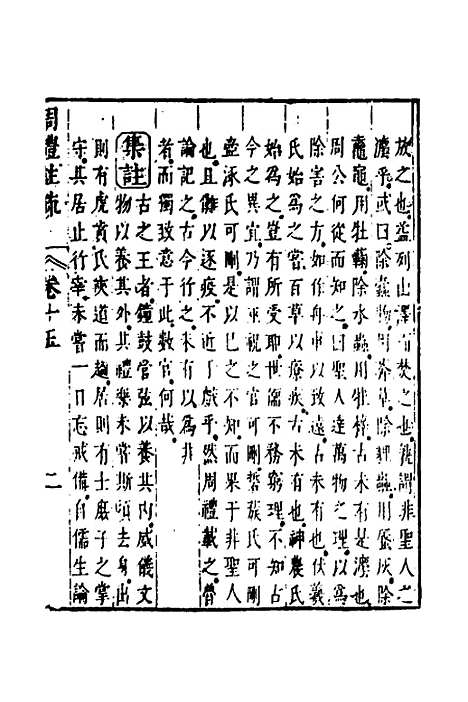 放之也益列山澤而焚之也孰謂非聖人之
灋乎或曰除蠹物用莽草除貍蟲用蜃灰除
鼃黽用牡蘜除水蟲用牡橭古未有是灋也
周公何從而知之曰聖人達萬物之理以爲
除害之方如作舟車以致遠古未有也伏羲
氏始爲之嘗百草以療疾古未有也神農氏
始爲之豈有所受耶世儒不務窮理不知古
今之異宜乃謂巫覡之官可刪硩蔟氏可刪
壺涿氏可刪是以已之不知而果于非聖人
也且儺以逐疫不近于戲乎然周禮載之魯
論記之古今行之未有以爲非
者而獨致意于此數官何哉
集註 古之王者鐘鼓管弦以養其内威儀文
物以養其外其禮樂未嘗斯須去身出
則有虎賁氏夾道而趨居則有士庶子之掌
守其居止行宰未嘗一日忘戒備自儒生論
周禮註疏 卷十五 二